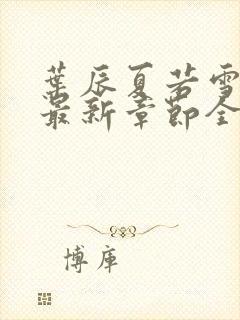 葉辰夏若雪
最新章節全
博庫